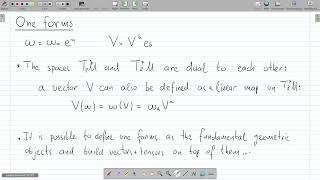 One forms
ω = ωₐ eᵃ V = Vᵇ e_b
* The spaces TₚM and Tₚ*M are dual to each other:
a vector V can also be defined as a linear map on Tₚ*M:
V(ω) = ω(V) = ωₐVᵃ
* It is possible to define one forms as the fundamental geometric
objects and build vectors + tensors on top of them...